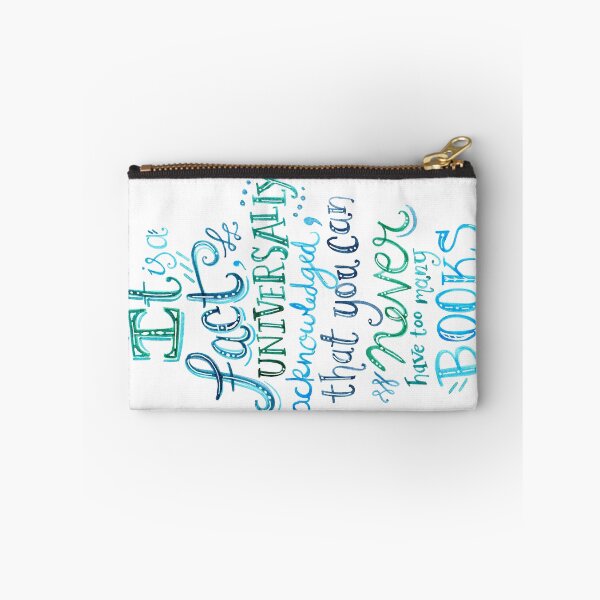 It is a
fact,
UNIVERSALLY
acknowledged,
that you can
never
have too many
BOOKS